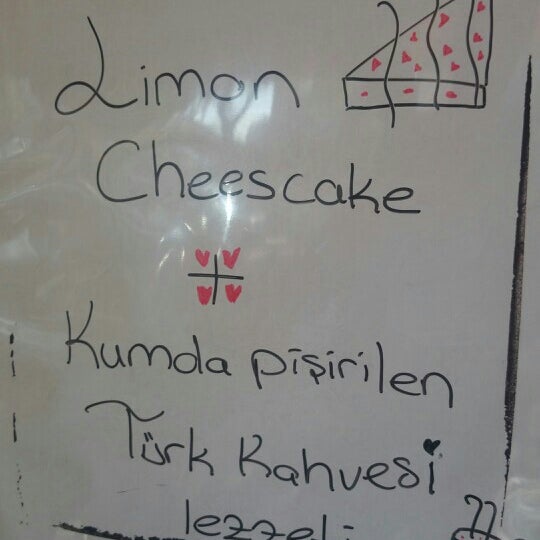 Limon
Cheescake
+
Kumda pişirilen
Türk Kahvesi
lezzeti